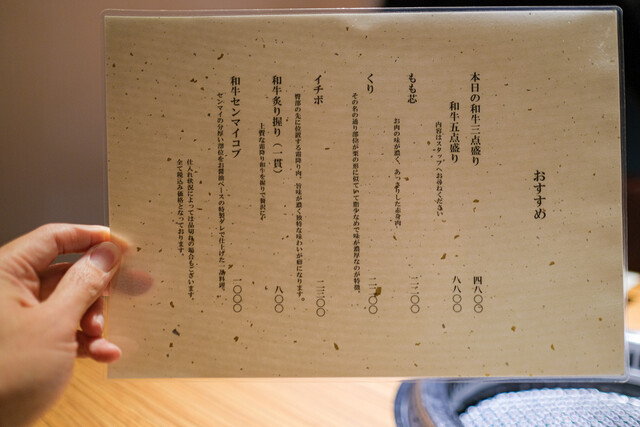 おすすめ
本日の和牛三点盛り 四八〇〇
和牛五点盛り 八八〇〇
内容はスタッフへお尋ねください
もも芯
お肉の味が濃く、あっさりした赤身肉
くり
その名の通り部位が栗の形に似ていて脂少なめで味が濃厚なのが特徴。
イチボ 二三〇〇
臀部の先に位置する霜降り肉、旨味が濃く独特な味わいが癖になります。
和牛炙り握り（一貫） 八〇〇
上質な霜降り和牛を握りで贅沢に♪
和牛センマイコブ 一〇〇〇
センマイの分厚い部位をお醤油ベースの特製ダレで仕上げた一漁料理。
仕入れ状況によっては品切れの場合もございます。
全て税込み価格となっております。